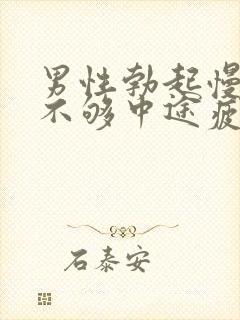 男性勃起慢
不够中途疲
石泰安